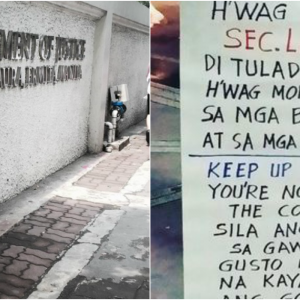 MENT OF JUSTICE
H'WAG
SEC. L
DI TULAD
H'WAG MO
SA MGA E
AT SA MGA
KEEP UP
YOU'RE NO
THE CO
SILA AN
SA GAW
GUSTO
NA KAY